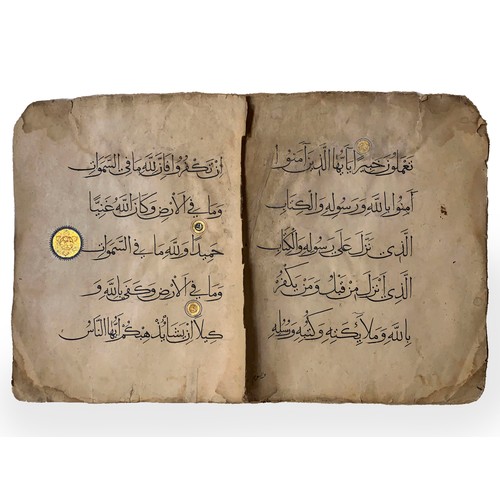 تعملون خبيرا يايها الذين آمنوا
آمنوا بالله ورسوله والكتاب
الذي نزل على رسوله والكتاب
الذي أنزل من قبل ومن يكفر
بالله وملائكته وكتبه ورسله
ان تكفروا فان لله ما في السموات
وما في الارض وكان الله غنيا
حميدا ولله ما في السموات
وما في الارض وكفى بالله و
كيلا ان يشأ يذهبكم أيها الناس